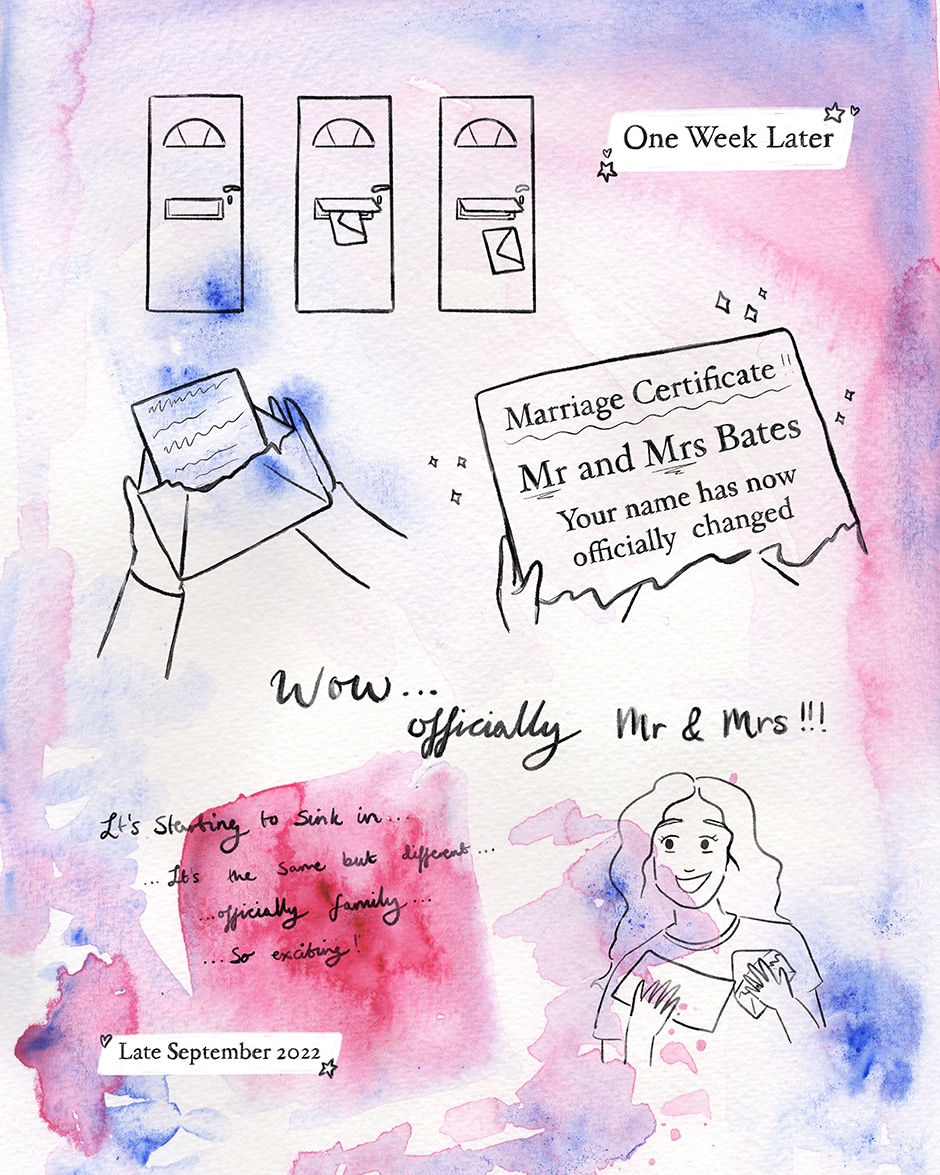 One Week Later
Marriage Certificate !!
Mr and Mrs Bates
Your name has now
officially changed
Wow...
officially Mr & Mrs !!!
It's Starting to Sink in...
...It's the Same but different...
...officially family...
...So exciting!
Late September 2022